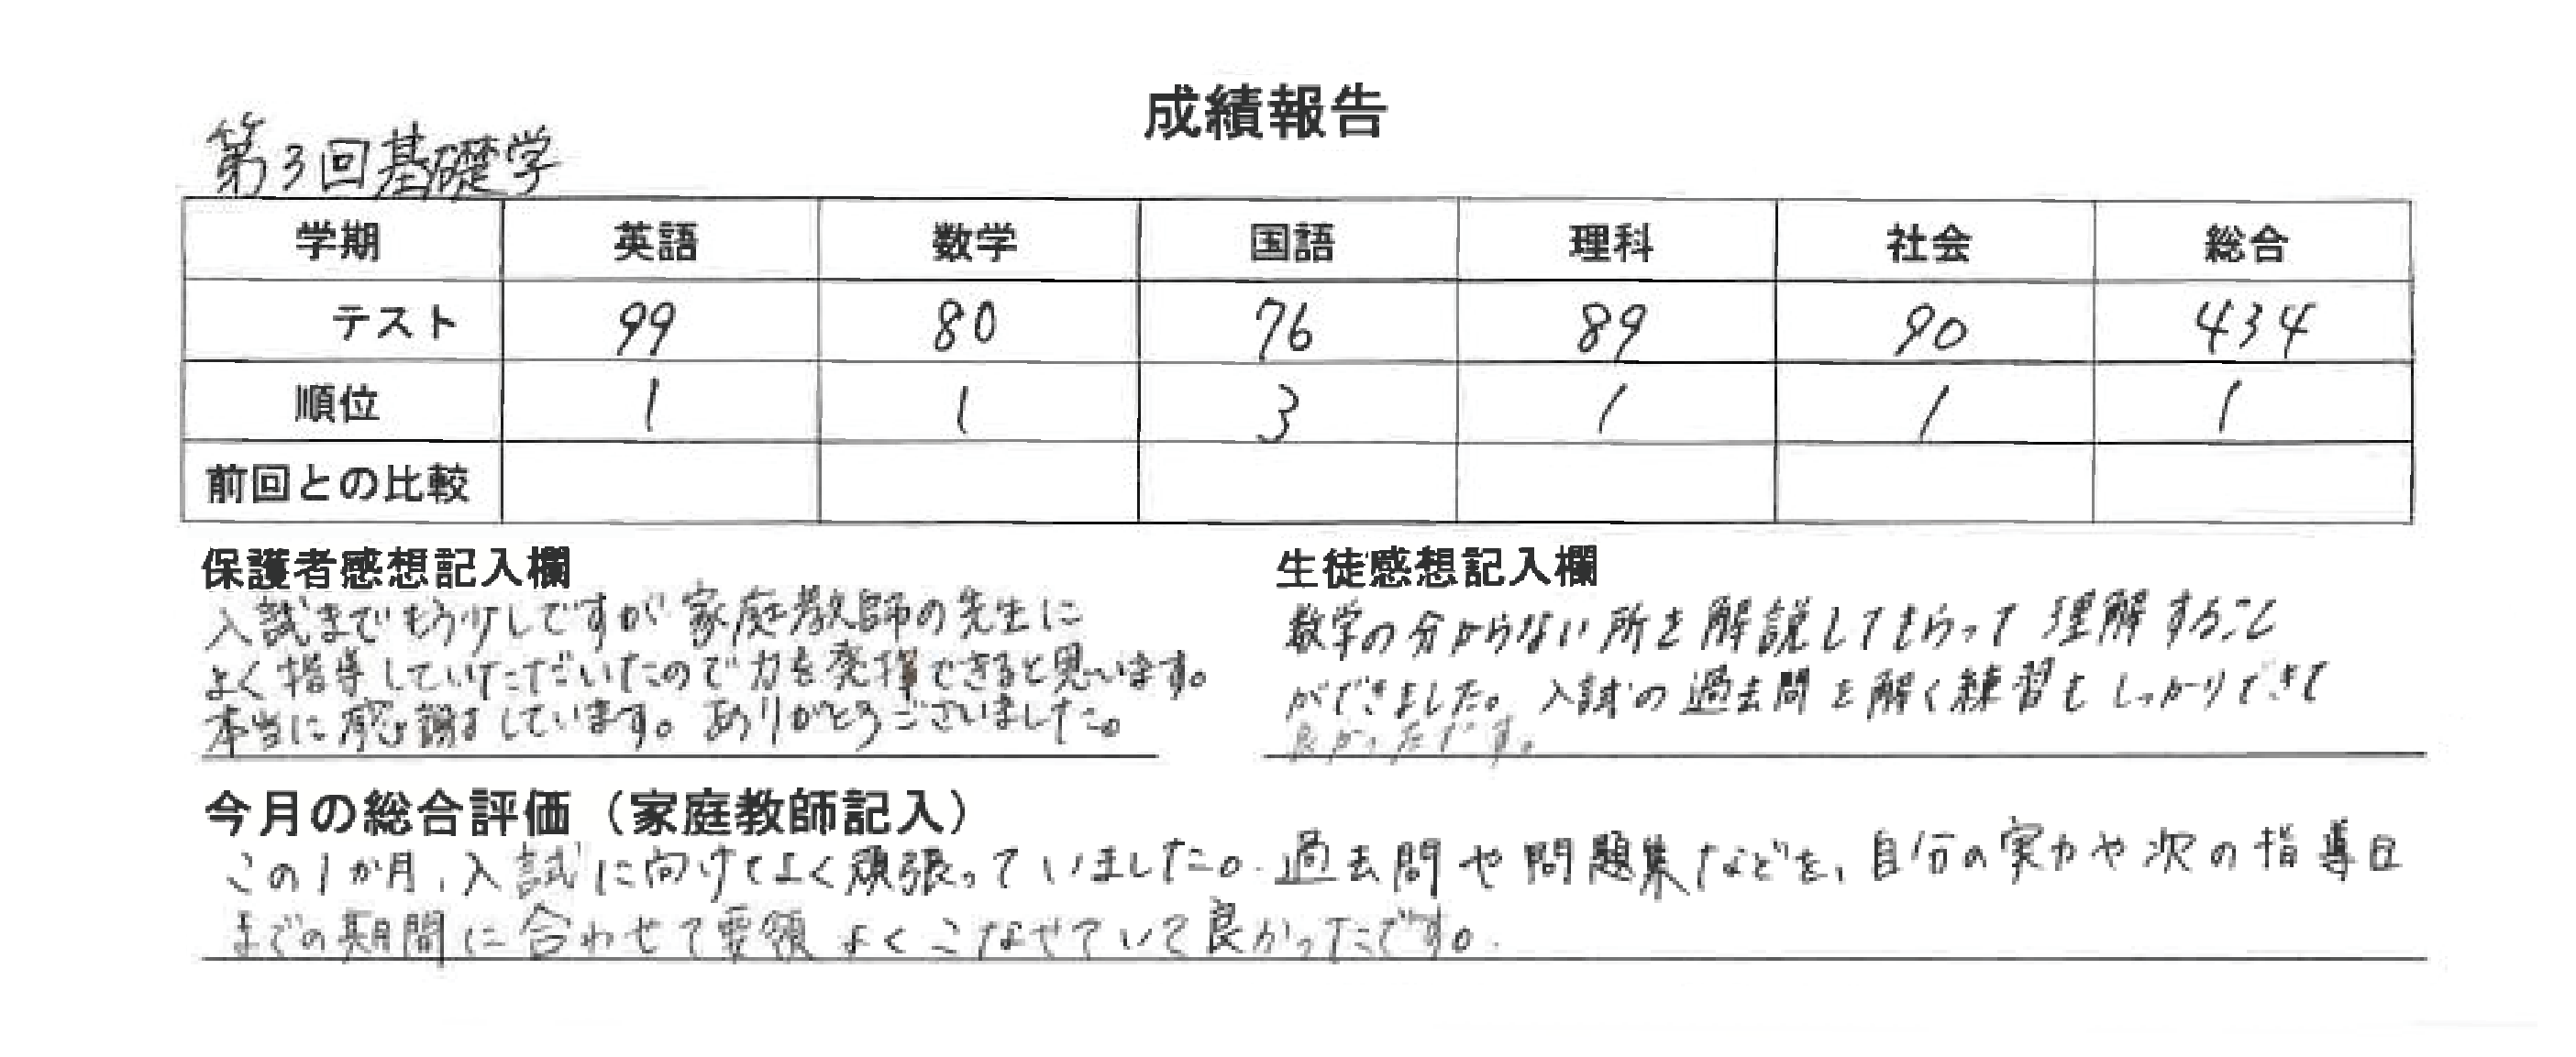 成績報告
第3回基礎学
学期 英語 数学 国語 理科 社会 総合
テスト 99 80 76 89 90 434
順位 1 1 3 1 1 1
前回との比較
保護者感想記入欄
入試までもう少しですが家庭教師の先生に
よく指導していただいたので力を発揮できると思います。
本当に感謝しています。ありがとうございました。
生徒感想記入欄
数学の分からない所を解説してもらって理解すること
ができました。入試の過去問を解く練習もしっかりできて
良かったです。
今月の総合評価（家庭教師記入）
この1か月、入試に向けてよく頑張っていました。過去問や問題集などを、自分の実力や次の指導日
までの期間に合わせて要領よくこなせていて良かったです。